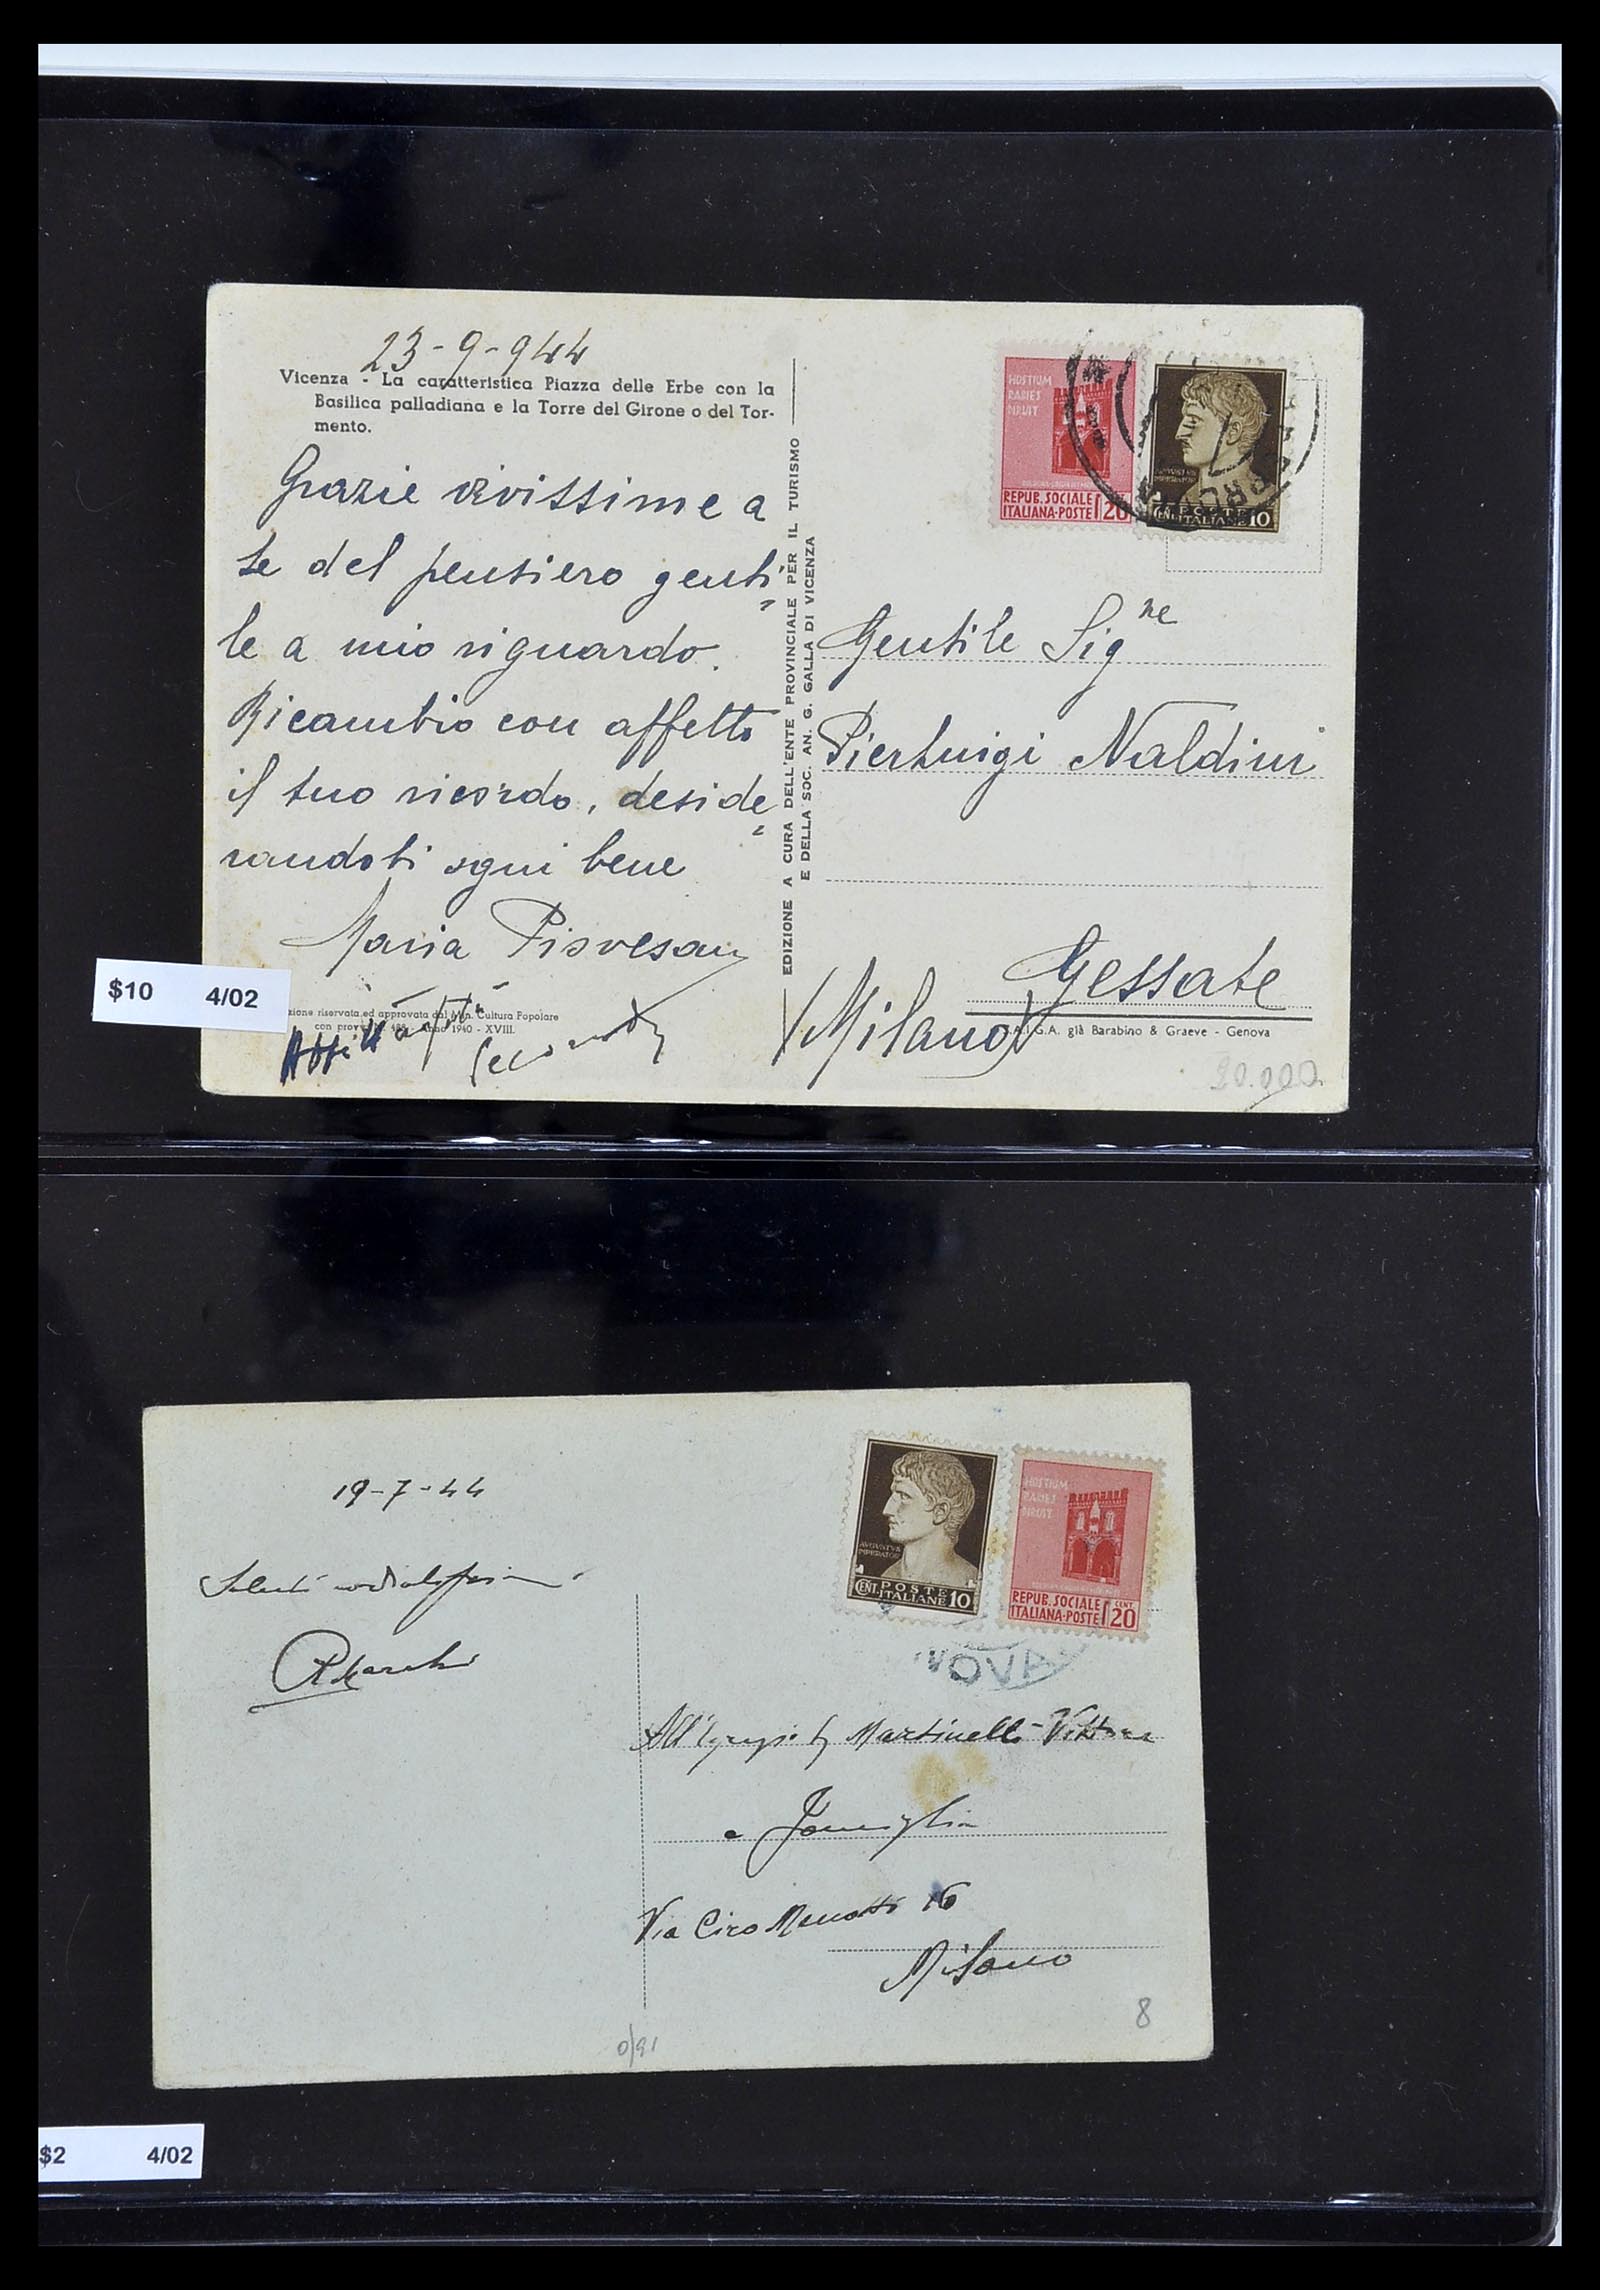 23-9-944
Vicenza - La caratteristica Piazza delle Erbe con la
Basilica palladiana e la Torre del Girone o del Tor-
mento.
Grazie vivissime a
te del pensiero genti
le a mio riguardo.
Ricambio con affetto
il tuo ricordo, deside
randoti ogni bene
Maria
zione riservata ed approvata dal Min. Cultura Popolare
1940 - XVIII.
EDIZIONE A CURA DELL'ENTE PROVINCIALE PER IL TURISMO
E DELLA SOC. AN. G. GALLA DI VICENZA
HOSTIUM
RABIES
DIRUIT
REPUB. SOCIALE
ITALIANA-POSTE 20
AUGUSTUS
IMPERATOR
POSTE
CENT. ITALIANE 10
Gentile Sig.ne
Pierluigi Naldini
Gessate
(Milano)
S.A.I.G.A. già Barabino & Graeve - Genova
$10 4/02
19-7-44
Saluti cordialissimi
AVGVSTVS
IMPERATOR
POSTE
CENT. ITALIANE 10
HOSTIUM
RABIES
DIRUIT
REPUB. SOCIALE CENT
ITALIANA-POSTE 20
OVA
All'egregio Sg Martinelli Vittore
e Famiglia
Via Ciro Menotti 16
Milano
8
0/91
$2 4/02